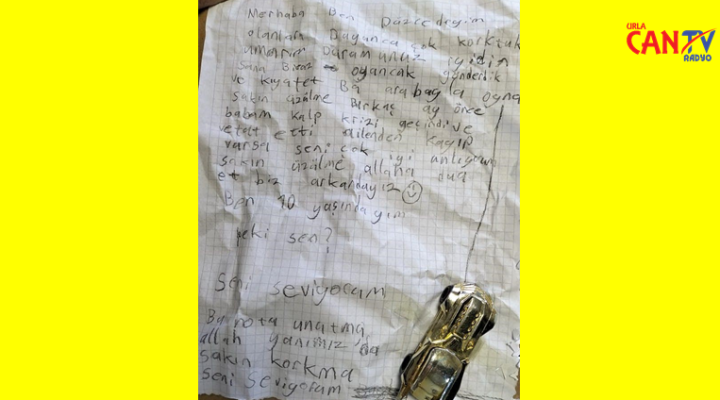 Merhaba Ben Düzcedeyim
olanları Duyunca çok korktuk
umarım Duramunuz iyidir
sana Biraz oyancak gönderdik
ve kıyafet Ba arabayla oyna
sakın üzülme Birkaç ay önce
babam kalp krizi geçirdi ve
vefat etti ailenden kayıp
varsa seni çok iyi anlıyorum
sakın üzülme allaha dua
et biz arkandayız
Ben 10 yaşındayım
peki sen?
Seni seviyorum
Bu notu unutma,
allah yanımızda
sakın korkma
seni seviyorum
URLA
CAN TV
RADYO